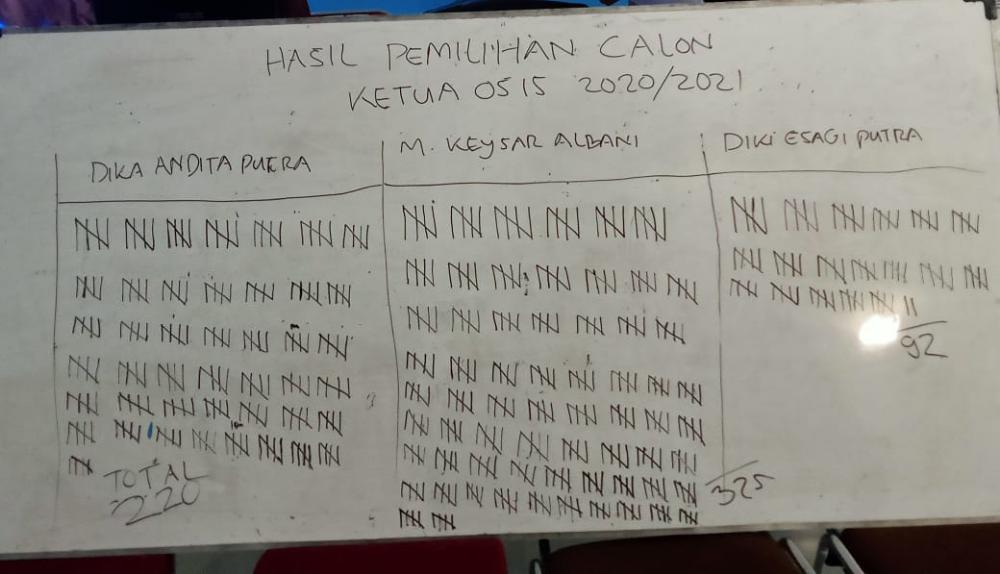 HASIL PEMILIHAN CALON
KETUA OSIS 2020/2021
DIKA ANDITA PUTRA
M. KEYSAR ALBANI
DIKI ESAGI PUTRA
TOTAL
220
325
92